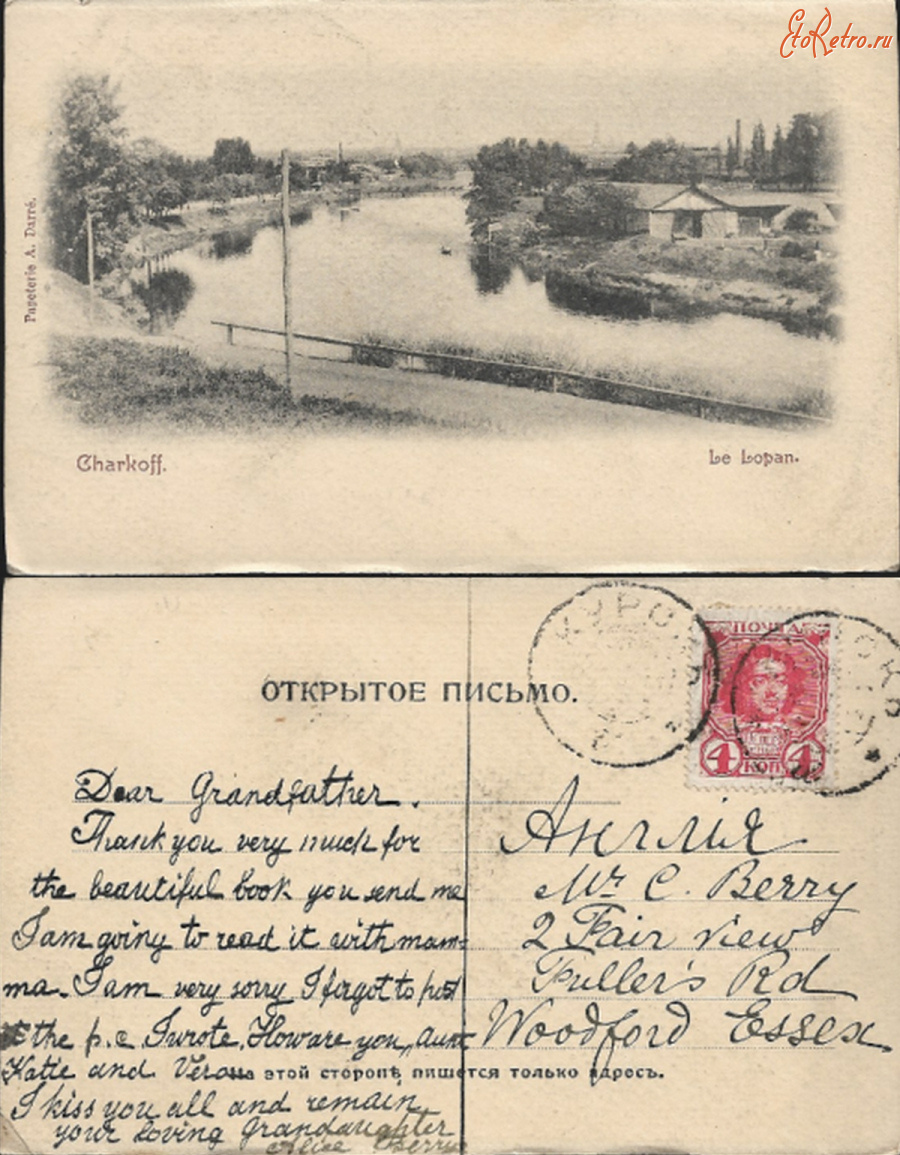 EtoRetro.ru
Papeterie A. Darré.
Charkoff.
Le Lopan.
ОТКРЫТОЕ ПИСЬМО.
КУРСКЪ
ПОЧТА
4 4
КОП
Dear Grandfather.
Thank you very much for
the beautiful book you send me
I am going to read it with mam-
ma. I am very sorry I forgot to post
the p.c. I wrote. How are you, aunt
Katie and Vera
на этой сторонѣ пишется только адресъ.
I kiss you all and remain
your loving Grandaughter
Alice Berry
Англія
Mr C. Berry
2 Fair view
Fuller's Rd
Woodford Essex.